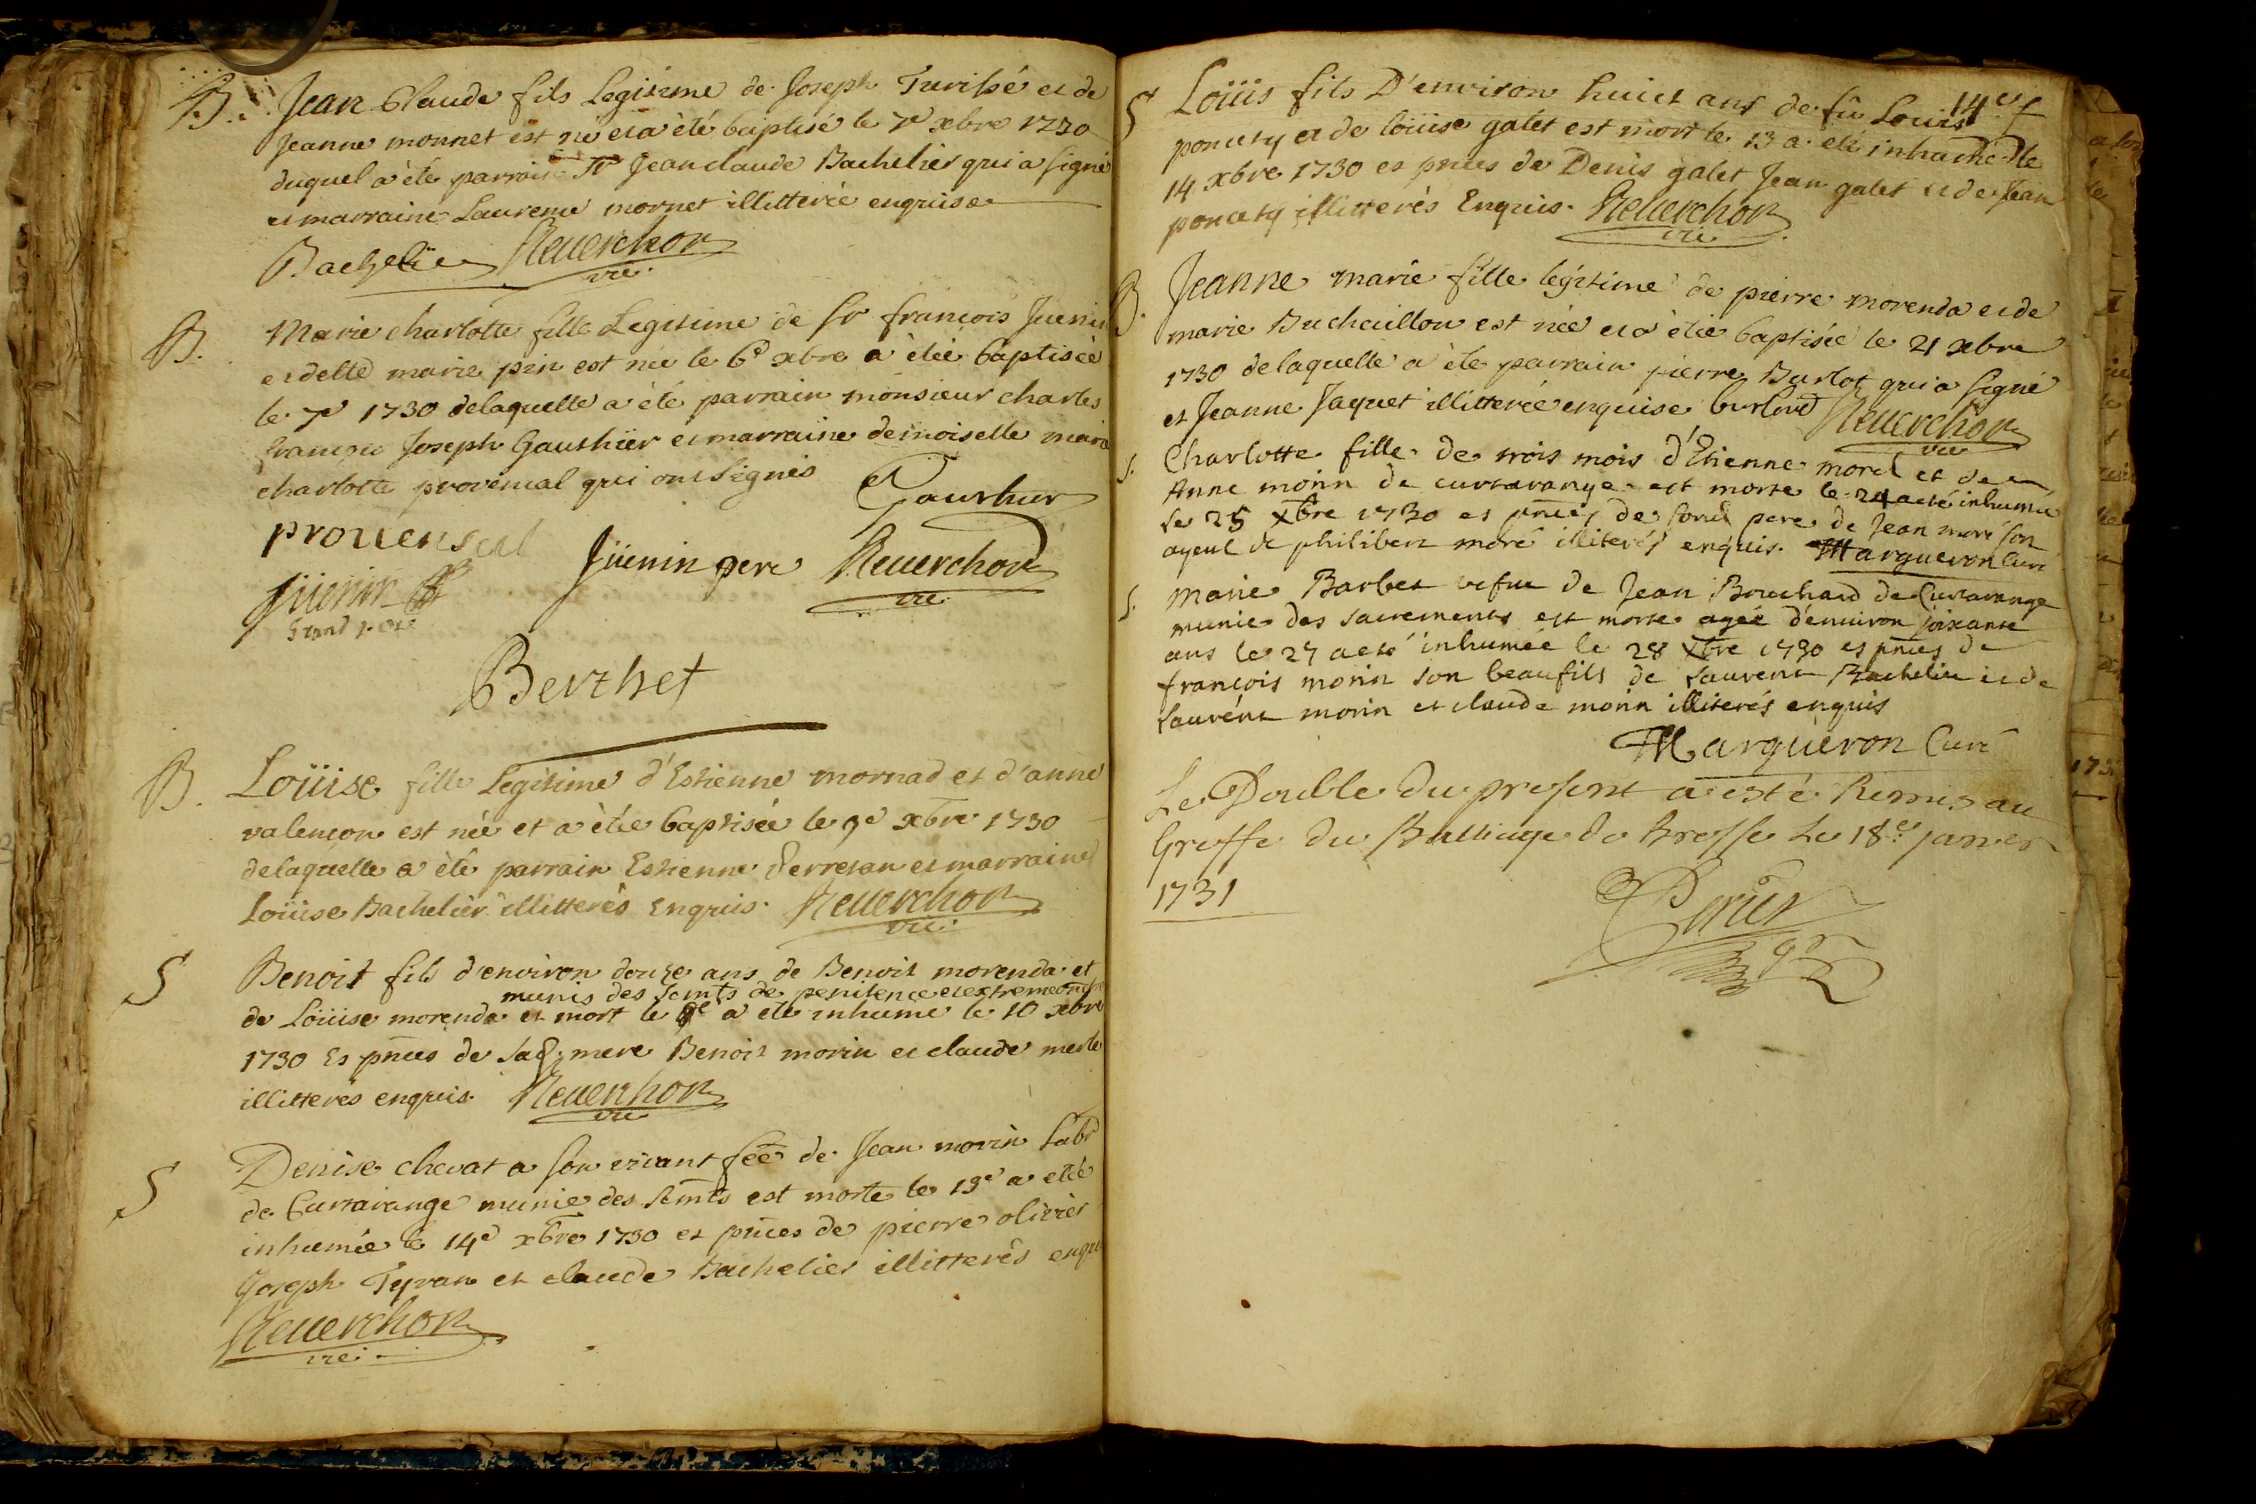 B. Jean Claude fils Legitime de Joseph et de
Jeanne monnet est né et a èté baptisé le 7e xbre 1730
duquel a èté parrain Sr Jean claude Bachelier qui a signé
et marraine Laurence mornet illitterée enquise
Bachelie Reuerchon
vic.
B. Marie charlotte fille Legitime de Sr françois Juenin
et delle marie pin est née le 6e xbre a ètée baptisée
le 7e 1730 de laquelle a èté parrain monsieur charles
françois Joseph Gauthier et marraine demoiselle marie
charlotte provencal qui ont signés Gauthier
prouensal
Jüenin pere Reuerchon
vic
Jüenin
Grand pere
Berthet
B. Loüise fille Legitime d'Estienne mornad et d'anne
valencon est née et a ètée baptisée le 9e xbre 1730
de laquelle a èté parrain Estienne Ferretan et marraine
Loüise Bachelièr illitterés Enquis. Reuerchon
vic.
S Benoit fils d'environ douze ans de Benoit morenda et
munis des Scmts de penitence et extreme onct
de Loüise morenda est mort le 9e a èté inhumé le 10 xbre
1730 Es pnces de sad. mere Benoit morin et claude merle
illitterés enquis. Reuerchon
vic
S Denise chevat a son vivant fêe de Jean morin Labr
de Curtavange munie des Scmts est morte le 13e a etée
inhumée le 14e xbre 1730 es pnces de pierre olivier
Joseph Tyvan et claude Bachelier illitterés enqui
Reuerchon
vic.
14e f
S Loüis fils D'environ huict ans de fû Louis
poncety et de loüise galet est mort le 13 a èté inhumé le
14 xbre 1730 es pnces de Denis galet Jean galet et de Jean
poncety illitterés Enquis. Reuerchon
vic.
B. Jeanne marie fille legitime de pierre morenda et de
marie Duchaillou est née et a ètée baptisée le 21 xbre
1730 de laquelle a èté parrain pierre Burlot qui a signé
et Jeanne Jaquet illitterée enquise burlod Reuerchon
vic
S. Charlotte fille de trois mois d'Etienne morel et de
Anne morin de curtavange est morte le 24 a eté inhumée
le 25 Xbre 1730 es pnces de son pere de Jean moré son
ayeul de philibert moré illiterés enquis. Margueron Curé
S. Marie Barbet vefue de Jean Bouchard de Curtavange
munie des sacrements est morte agée d'enuiron soixante
ans le 27 a eté inhumée le 28 Xbre 1730 es pnces de
françois morin son beaufils de Laurent Bachelier et de
Laurént morin et claude morin illiterés enquis
Margueron Curé
Le Double du present a esté Remis au
Greffe du Balliage de Bresse Le 18e janvier
1731